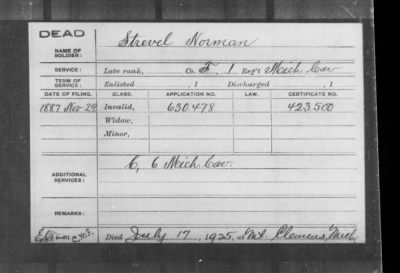 DEAD
NAME OF SOLDIER: Strevel Norman
SERVICE: Late rank, Co. F, 1 Reg't Mich Cav
TERM OF SERVICE: Enlisted , 1 Discharged , 1
DATE OF FILING. CLASS. APPLICATION NO. LAW. CERTIFICATE NO.
1887 Nov 29 Invalid, 630.478 423.500
Widow,
Minor,
ADDITIONAL SERVICES: C, 6 Mich Cav.
REMARKS:
Died July 17, 1925, at Mt. Clemens, Mich